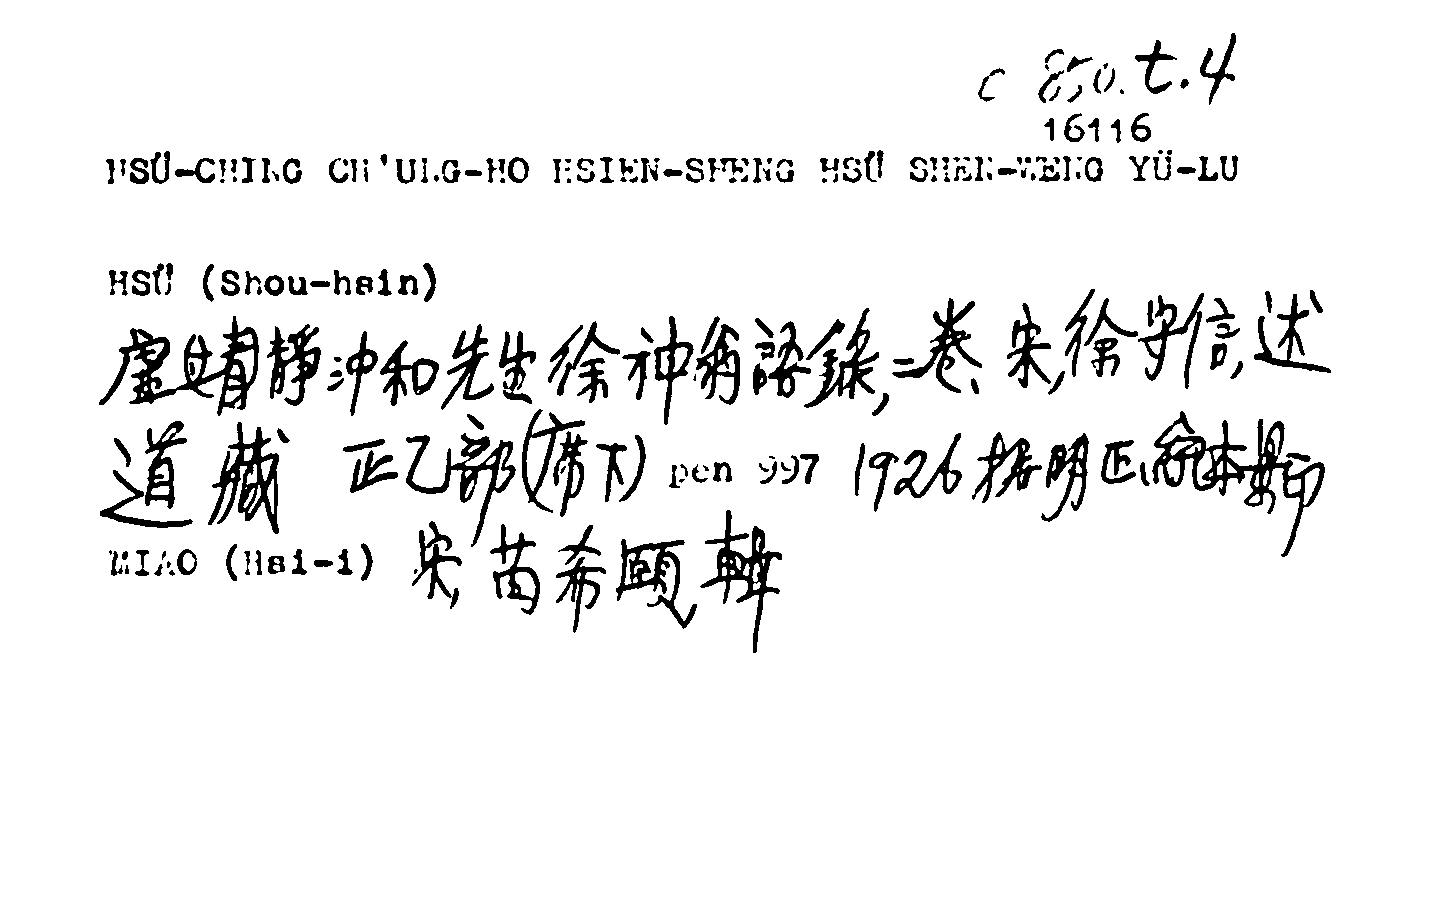 C 850.t.4
16116
HSÜ-CHING CH'UNG-HO HSIEN-SHENG HSÜ SHEN-WENG YÜ-LU
HSÜ (Shou-hsin)
虛靖靜沖和先生徐神翁語錄,二卷、宋,徐守信,述
道藏 正乙部(席下) pen 997 1926 据明正統本影印
MIAO (Hsi-i) 宋,苗希頤,輯